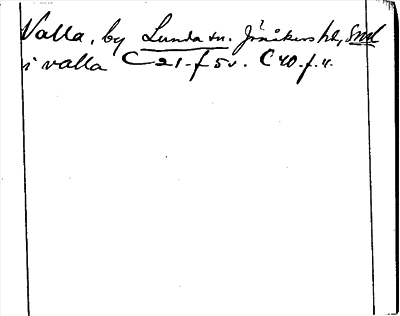 Valla, by Lunda sn. Jönåkers hd, Sml
i valla C 21. f 5v. C 40. f. 4.